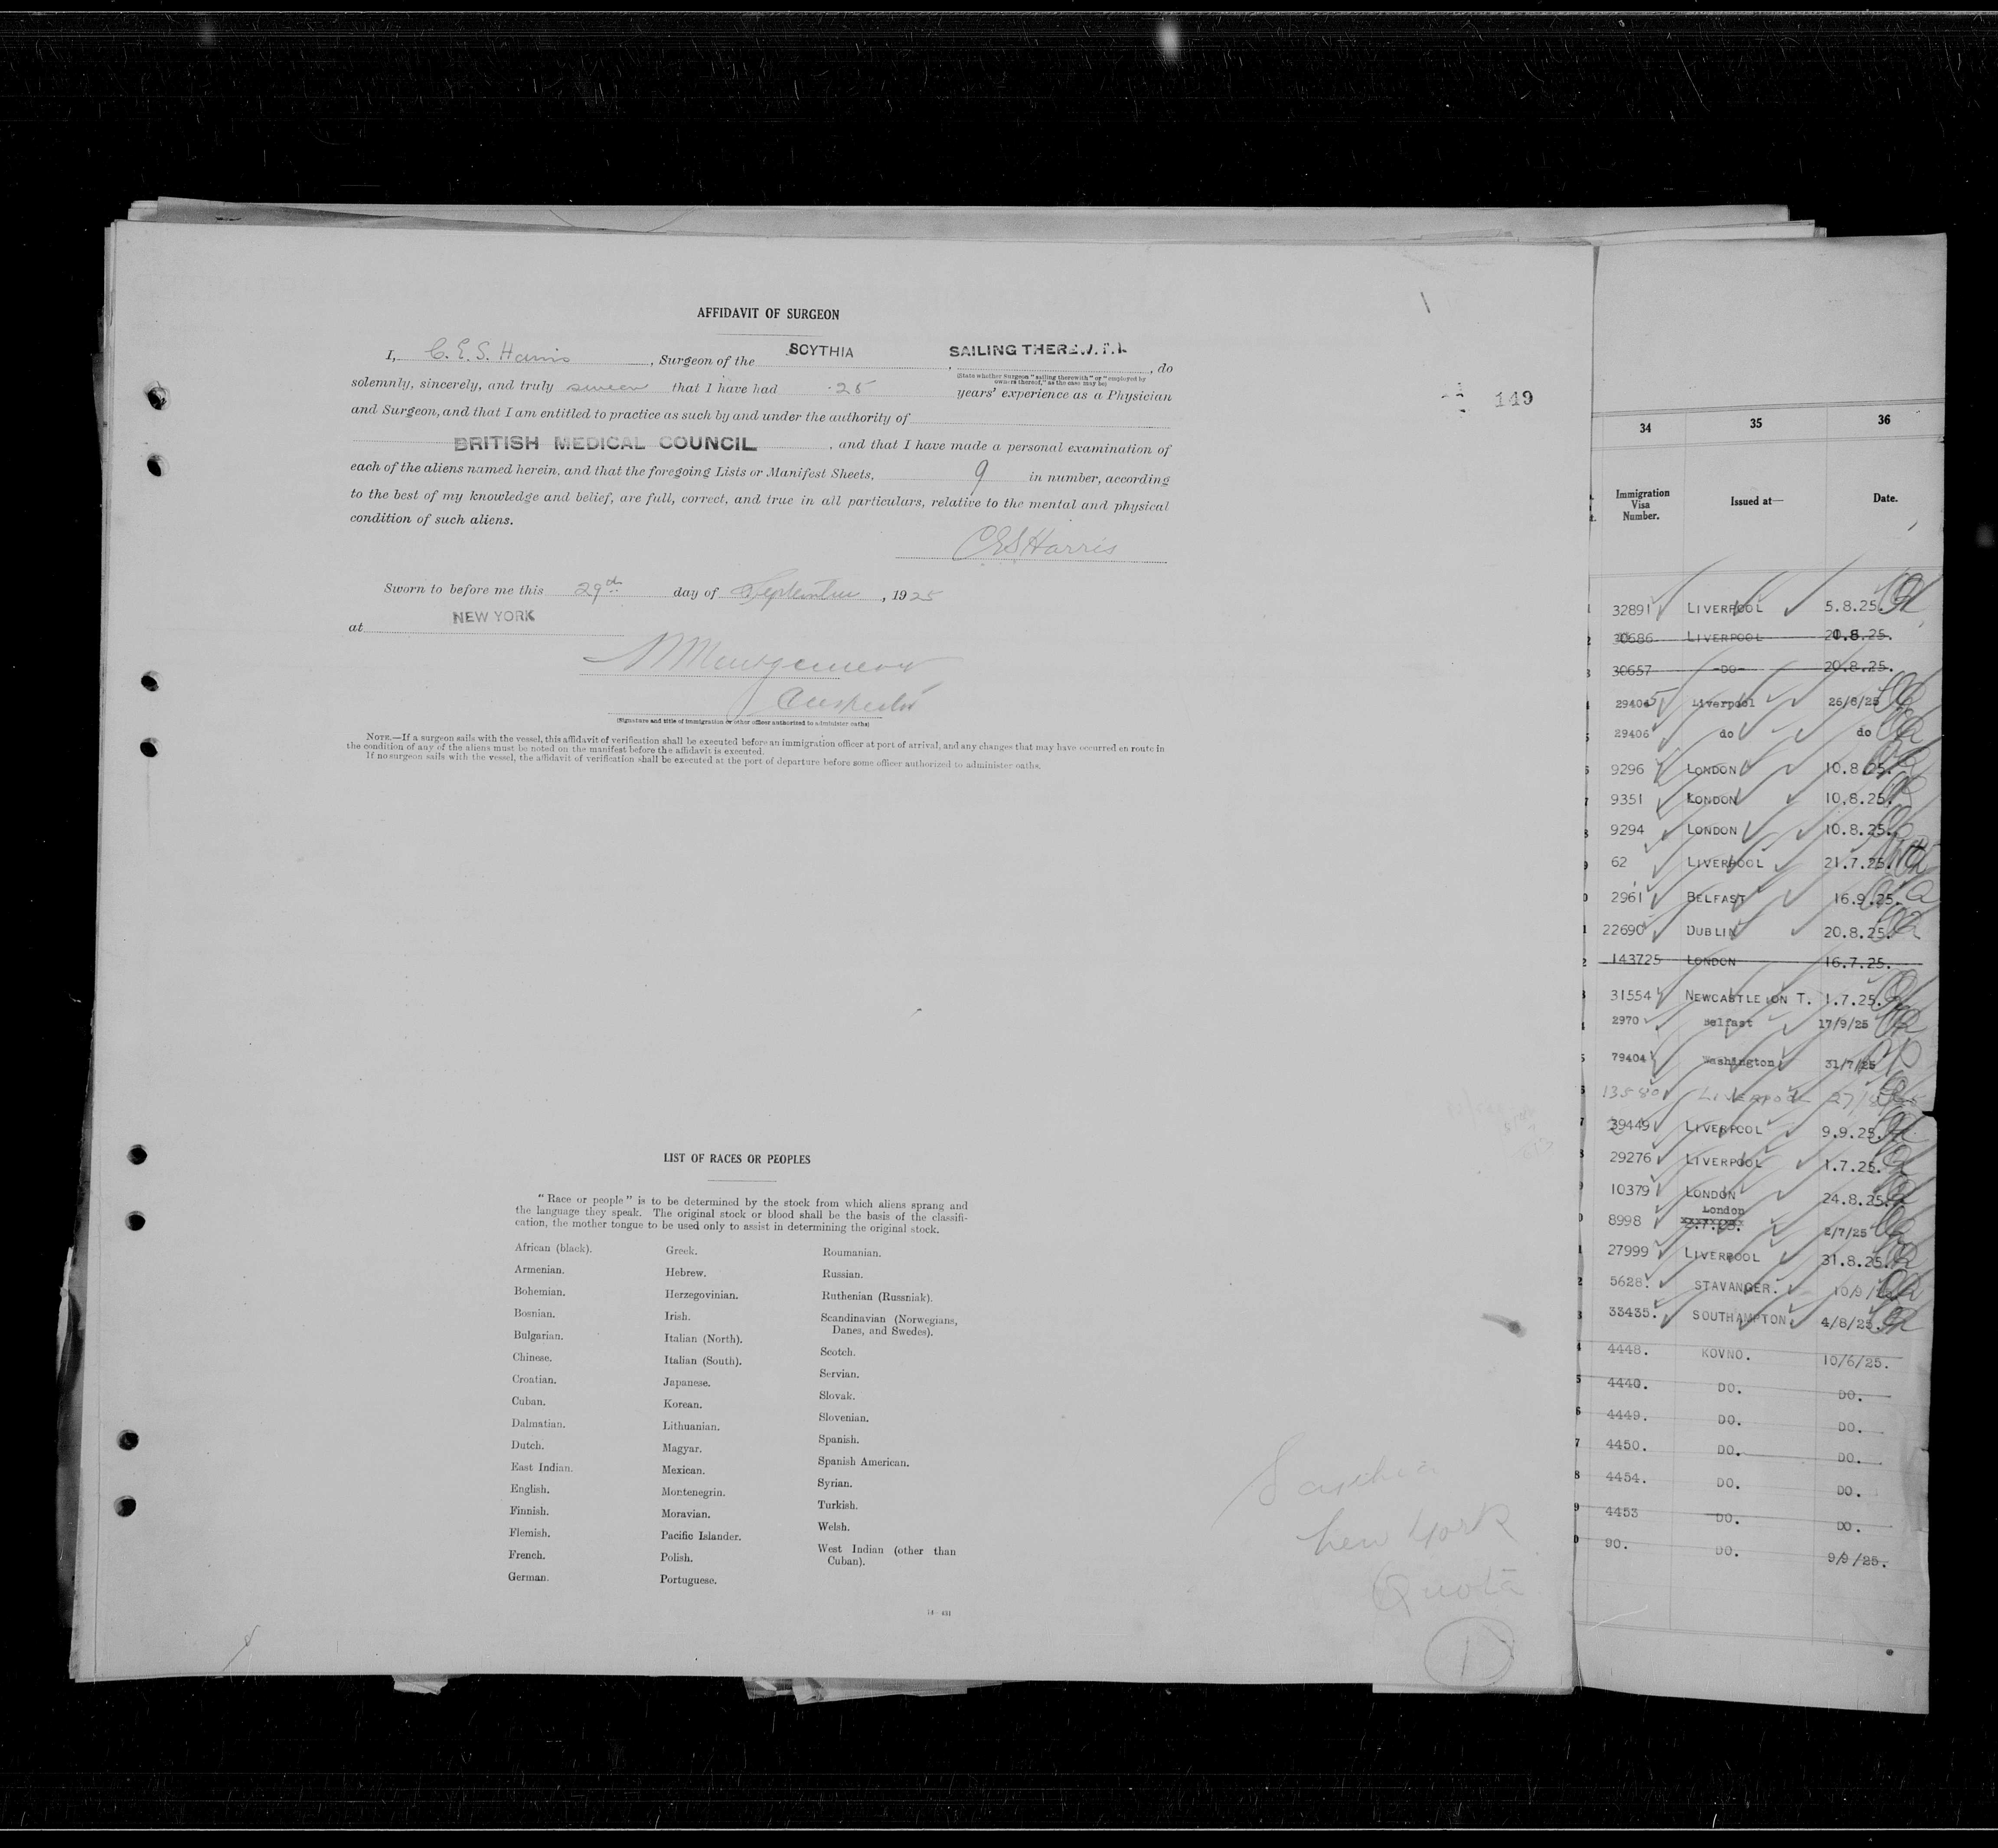 AFFIDAVIT OF SURGEON
I, C. E. S. Harris, Surgeon of the SCYTHIA, SAILING THEREWITH, do
(State whether Surgeon "sailing therewith" or "employed by
owners thereof," as the case may be)
solemnly, sincerely, and truly swear that I have had 25 years' experience as a Physician
and Surgeon, and that I am entitled to practice as such by and under the authority of
BRITISH MEDICAL COUNCIL, and that I have made a personal examination of
each of the aliens named herein, and that the foregoing Lists or Manifest Sheets, 9 in number, according
to the best of my knowledge and belief, are full, correct, and true in all particulars, relative to the mental and physical
condition of such aliens.
C E S Harris
Sworn to before me this 29th day of September, 1925
at NEW YORK
(Signature and title of immigration or other officer authorized to administer oaths)
NOTE.—If a surgeon sails with the vessel, this affidavit of verification shall be executed before an immigration officer at port of arrival, and any changes that may have occurred en route in
the condition of any of the aliens must be noted on the manifest before the affidavit is executed.
If no surgeon sails with the vessel, the affidavit of verification shall be executed at the port of departure before some officer authorized to administer oaths.
149
LIST OF RACES OR PEOPLES
"Race or people" is to be determined by the stock from which aliens sprang and
the language they speak. The original stock or blood shall be the basis of the classifi-
cation, the mother tongue to be used only to assist in determining the original stock.
African (black).
Armenian.
Bohemian.
Bosnian.
Bulgarian.
Chinese.
Croatian.
Cuban.
Dalmatian.
Dutch.
East Indian.
English.
Finnish.
Flemish.
French.
German.
Greek.
Hebrew.
Herzegovinian.
Irish.
Italian (North).
Italian (South).
Japanese.
Korean.
Lithuanian.
Magyar.
Mexican.
Montenegrin.
Moravian.
Pacific Islander.
Polish.
Portuguese.
Roumanian.
Russian.
Ruthenian (Russniak).
Scandinavian (Norwegians,
Danes, and Swedes).
Scotch.
Servian.
Slovak.
Slovenian.
Spanish.
Spanish American.
Syrian.
Turkish.
Welsh.
West Indian (other than
Cuban).
New York
Quota
1
34 35 36
Immigration
Visa
Number.
Issued at—
Date.
32891 LIVERPOOL 5.8.25.
30686 LIVERPOOL
30657 -DO- 20.8.25.
29405 Liverpool 26/8/25
29406 do do
9296 LONDON 10.8.25.
9351 LONDON 10.8.25.
9294 LONDON 10.8.25.
62 LIVERPOOL 21.7.25.
2961 BELFAST 16.9.25.
22690 DUBLIN 20.8.25.
143725 LONDON 16.7.25.
31554 NEWCASTLE ON T. 1.7.25.
2970 Belfast 17/9/25
79404 Washington 31/7/25
13580 LIVERPOOL
39449 LIVERPOOL 9.9.25.
29276 LIVERPOOL 1.7.25.
10379 LONDON 24.8.25.
8998 London 2/7/25
27999 LIVERPOOL 31.8.25.
5628. STAVANGER. 10/9/
33435. SOUTHAMPTON 4/8/25.
4448. KOVNO. 10/6/25.
4440. DO. DO.
4449. DO. DO.
4450. DO. DO.
4454. DO. DO.
4453 DO. DO.
90. DO. 9/9/25.